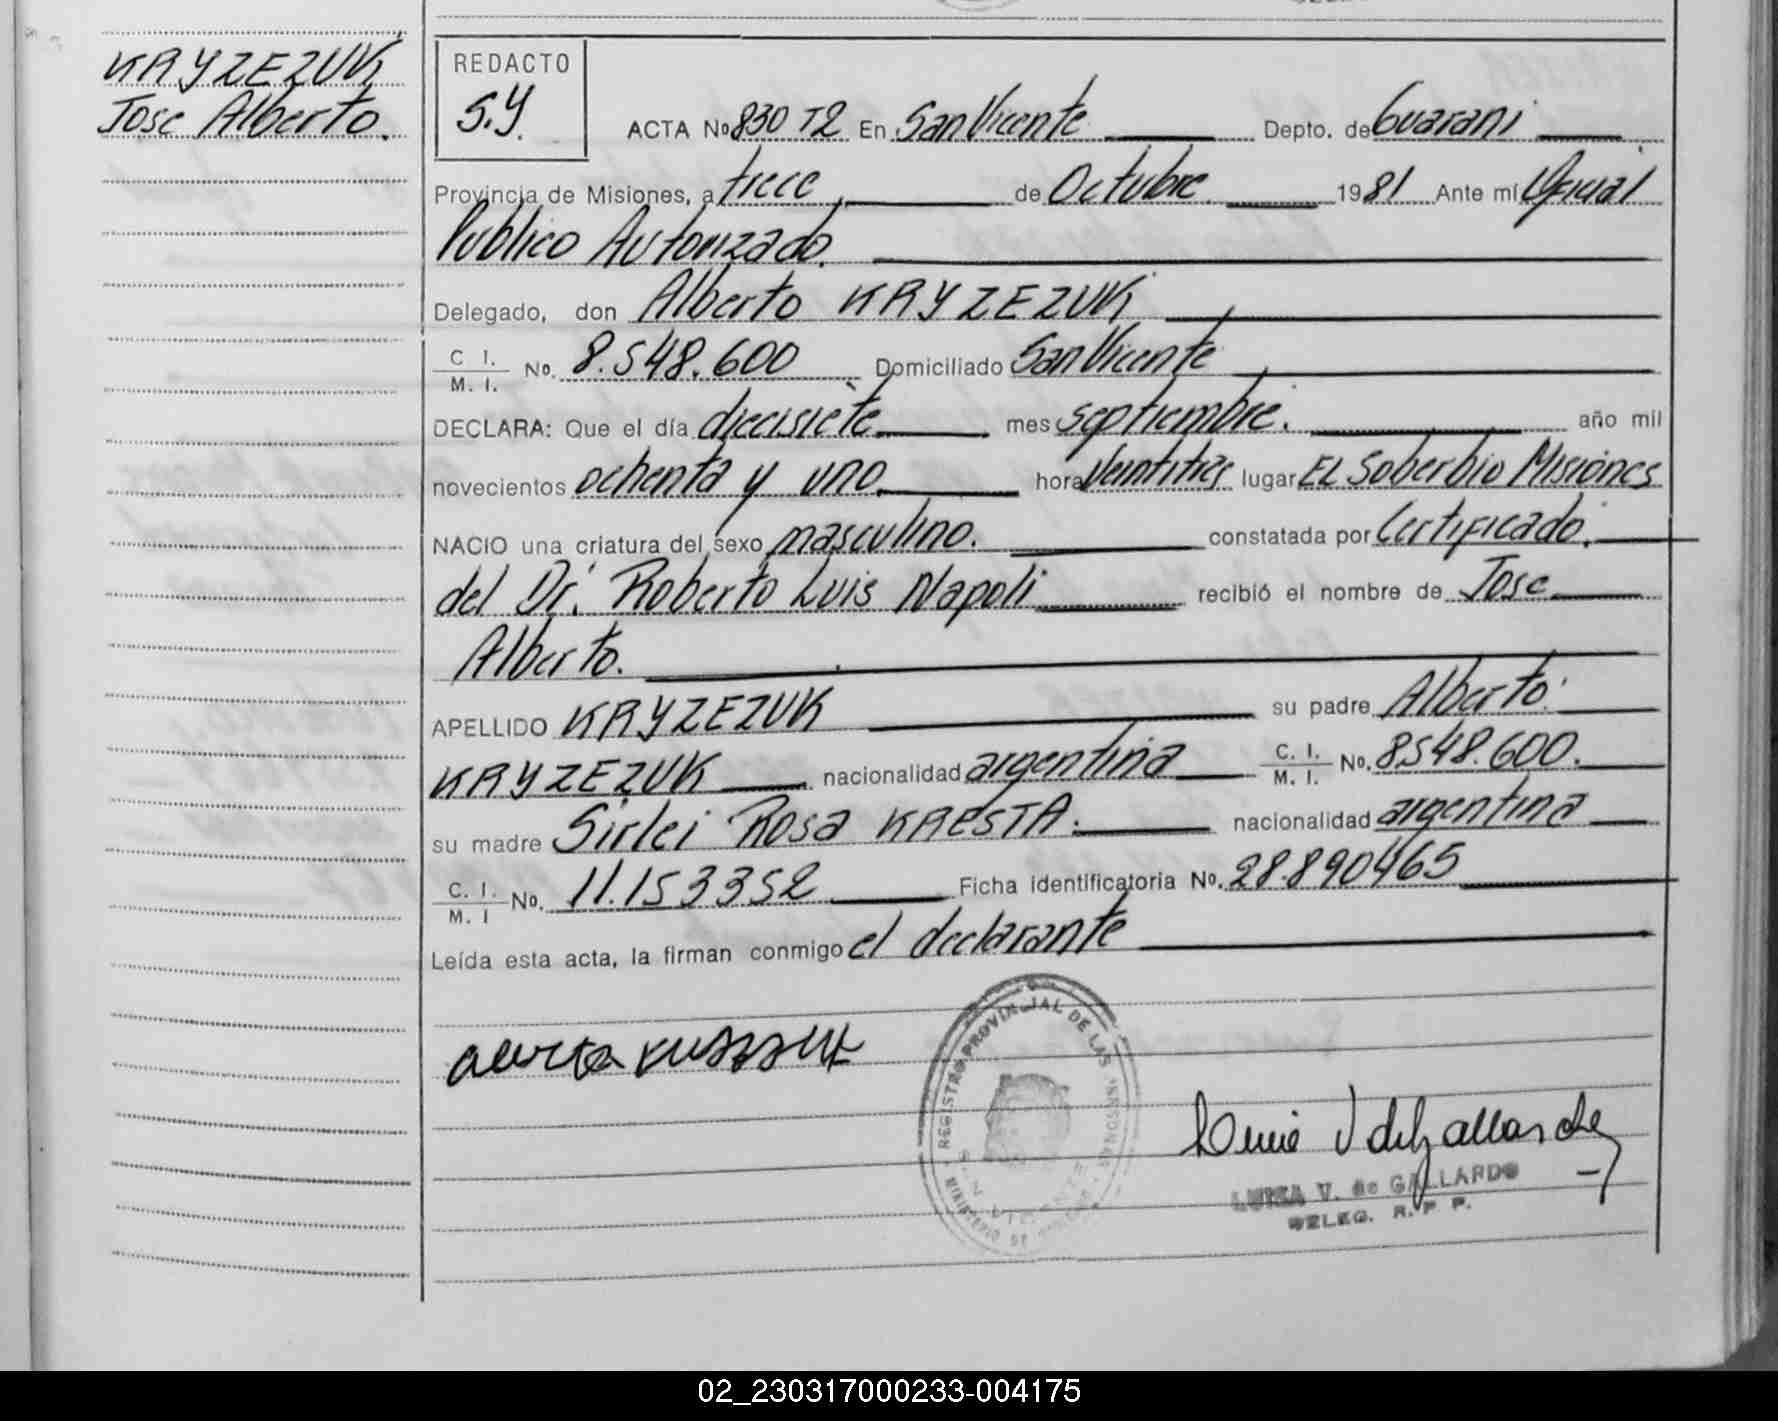 KRYZEZUK
Jose Alberto.
REDACTO
S.Y.
ACTA No 830 T2 En San Vicente Depto. de Guarani
Provincia de Misiones, a trece de Octubre 1981 Ante mí Oficial
Publico Autorizado.
Delegado, don Alberto KRYZEZUK
C. I. M. I. No. 8.548.600 Domiciliado San Vicente
DECLARA: Que el día diecisiete mes septiembre. año mil
novecientos ochenta y uno hora veintitres lugar EL Soberbio Misiones
NACIO una criatura del sexo masculino. constatada por Certificado
del Dr. Roberto Luis Napoli recibió el nombre de Jose
Alberto.
APELLIDO KRYZEZUK su padre Alberto
KRYZEZUK nacionalidad argentina C. I. M. I. No. 8.548.600.
su madre Sirlei Rosa KRESTA. nacionalidad argentina
C. I. M. I No. 11.153352 Ficha identificatoria No. 28.890465
Leída esta acta, la firman conmigo el declarante
REGISTRO PROVINCIAL DE LAS PERSONAS
LUISA V. de GALLARDO
DELEG. R. P. P.
02_230317000233-004175